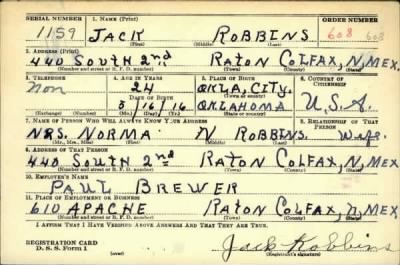 SERIAL NUMBER 1. NAME (Print) ORDER NUMBER
1159 JACK ROBBINS 608 608
(First) (Middle) (Last)
2. ADDRESS (Print)
440 SOUTH 2nd RATON COLFAX, N, MEX.
(Number and street or R. F. D. number) (Town) (County) (State)
3. TELEPHONE 4. AGE IN YEARS 5. PLACE OF BIRTH 6. COUNTRY OF CITIZENSHIP
Non 24 OKLA, CITY.
DATE OF BIRTH (Town or county)
5/16/16 OKLAHOMA U.S.A.
(Exchange) (Number) (Mo.) (Day) (Yr.) (State or country)
7. NAME OF PERSON WHO WILL ALWAYS KNOW YOUR ADDRESS 8. RELATIONSHIP OF THAT PERSON
MRS. NORMA N ROBBINS. Wife.
(Mr., Mrs., Miss) (First) (Middle) (Last)
9. ADDRESS OF THAT PERSON
440 SOUTH 2nd RATON COLFAX, N, MEX
(Number and street or R. F. D. number) (Town) (County) (State)
10. EMPLOYER'S NAME
PAUL BREWER
11. PLACE OF EMPLOYMENT OR BUSINESS
610 APACHE RATON COLFAX, N, MEX
(Number and street or R. F. D. number) (Town) (County) (State)
I AFFIRM THAT I HAVE VERIFIED ABOVE ANSWERS AND THAT THEY ARE TRUE.
REGISTRATION CARD
D. S. S. Form 1 (over) Jack Robbins
(Registrant's signature)